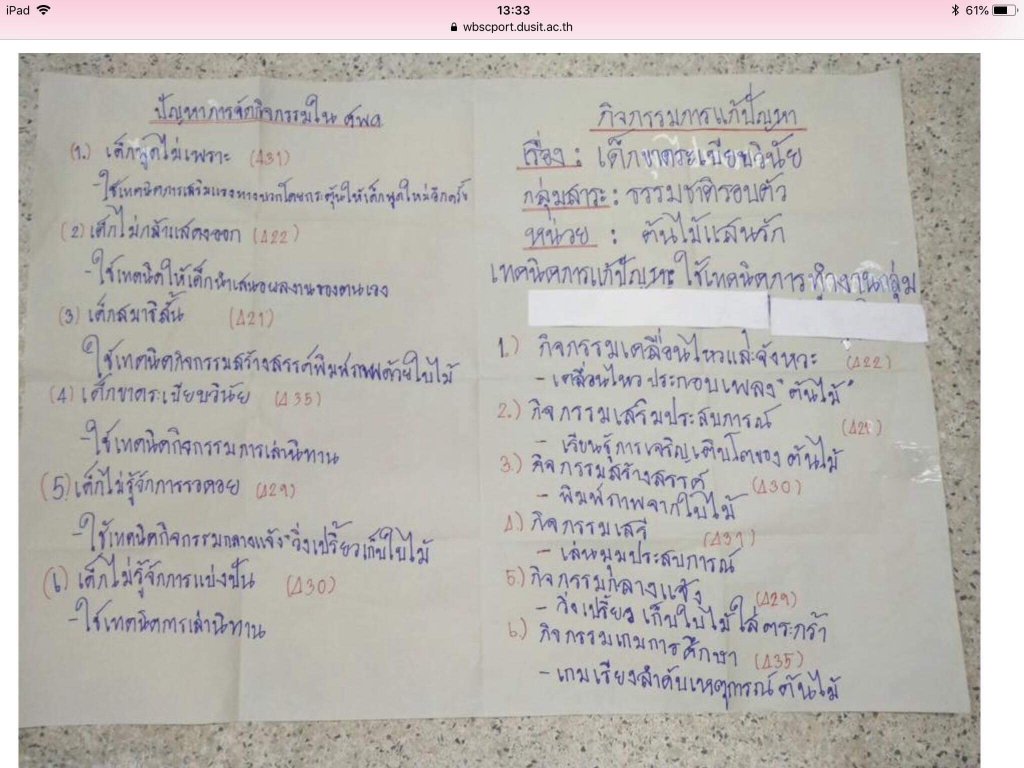 iPad
13:33
61%
wbscport.dusit.ac.th
ปัญหาการจัดกิจกรรมใน ศพด
(1.) เด็กพูดไม่เพราะ (Δ31)
-ใช้เทคนิคการเสริมแรงทางบวกโดยกระตุ้นให้เด็กพูดใหม่อีกครั้ง
(2) เด็กไม่กล้าแสดงออก (Δ22)
-ใช้เทคนิคให้เด็กนำเสนอผลงานของตนเอง
(3) เด็กสมาธิสั้น (Δ21)
ใช้เทคนิคกิจกรรมสร้างสรรค์พิมพ์ภาพด้วยใบไม้
(4) เด็กขาดระเบียบวินัย (Δ35)
-ใช้เทคนิคกิจกรรมการเล่านิทาน
(5) เด็กไม่รู้จักการรอคอย (Δ29)
-ใช้เทคนิคกิจกรรมกลางแจ้ง"วิ่งเปรี้ยวเก็บใบไม้
(6) เด็กไม่รู้จักการแบ่งปัน (Δ30)
-ใช้เทคนิคการเล่านิทาน
กิจกรรมการแก้ปัญหา
เรื่อง : เด็กขาดระเบียบวินัย
กลุ่มสาระ : ธรรมชาติรอบตัว
หน่วย : ต้นไม้แสนรัก
เทคนิคการแก้ปัญหา ใช้เทคนิคการทำงานกลุ่ม
1.) กิจกรรมเคลื่อนไหวและจังหวะ (Δ22)
- เคลื่อนไหวประกอบเพลง"ต้นไม้"
2.) กิจกรรมเสริมประสบการณ์
- เรียนรู้การเจริญเติบโตของต้นไม้
3.) กิจกรรมสร้างสรรค์ (Δ30)
- พิมพ์ภาพจากใบไม้
4) กิจกรรมเสรี (Δ31)
- เล่นมุมประสบการณ์
5) กิจกรรมกลางแจ้ง (Δ29)
- วิ่งเปรี้ยว เก็บใบไม้ใส่ตระกร้า
6.) กิจกรรมเกมการศึกษา (Δ35)
- เกมเรียงลำดับเหตุการณ์ต้นไม้